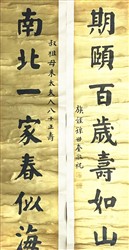 期頤百歲壽如山
叔祖母朱太夫人八十正壽
南北一家春似海